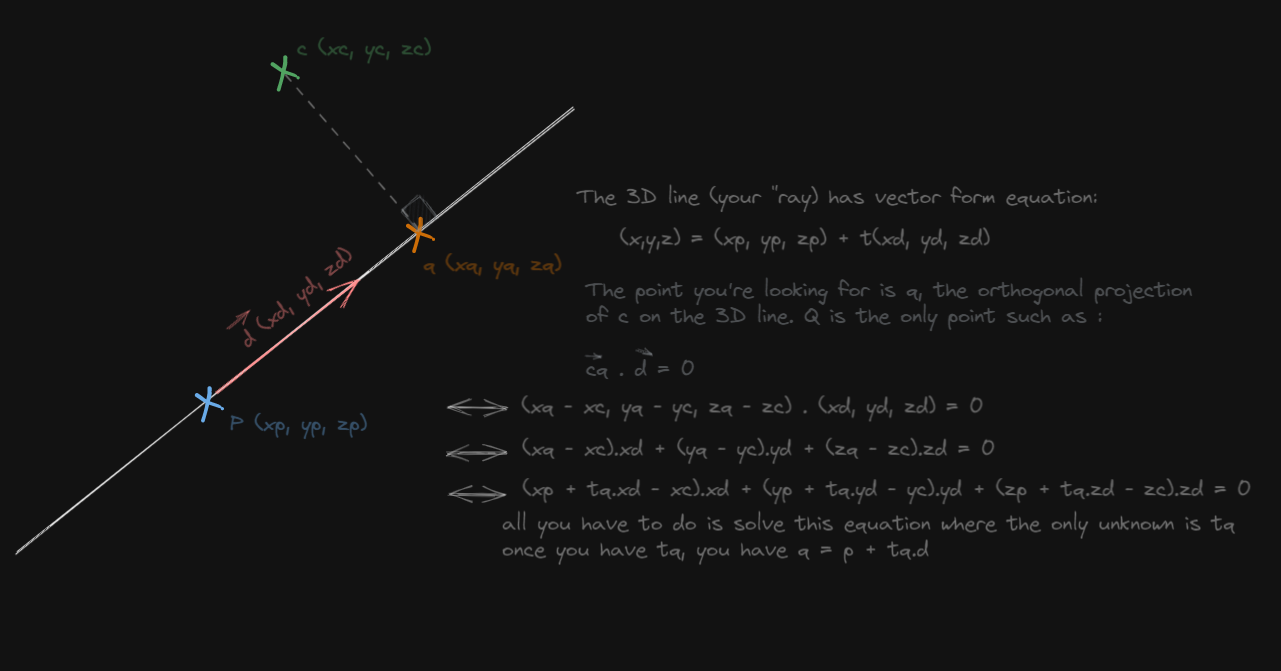 c (xc, yc, zc)
The 3D line (your "ray) has vector form equation:
(x,y,z) = (xp, yp, zp) + t(xd, yd, zd)
q (xq, yq, zq)
d (xd, yd, zd)
The point you're looking for is q, the orthogonal projection
of c on the 3D line. Q is the only point such as :
cq . d = 0
P (xp, yp, zp)
(xq - xc, yq - yc, zq - zc) . (xd, yd, zd) = 0
(xq - xc).xd + (yq - yc).yd + (zq - zc).zd = 0
(xp + tq.xd - xc).xd + (yp + tq.yd - yc).yd + (zp + tq.zd - zc).zd = 0
all you have to do is solve this equation where the only unknown is tq
once you have tq, you have q = p + tq.d